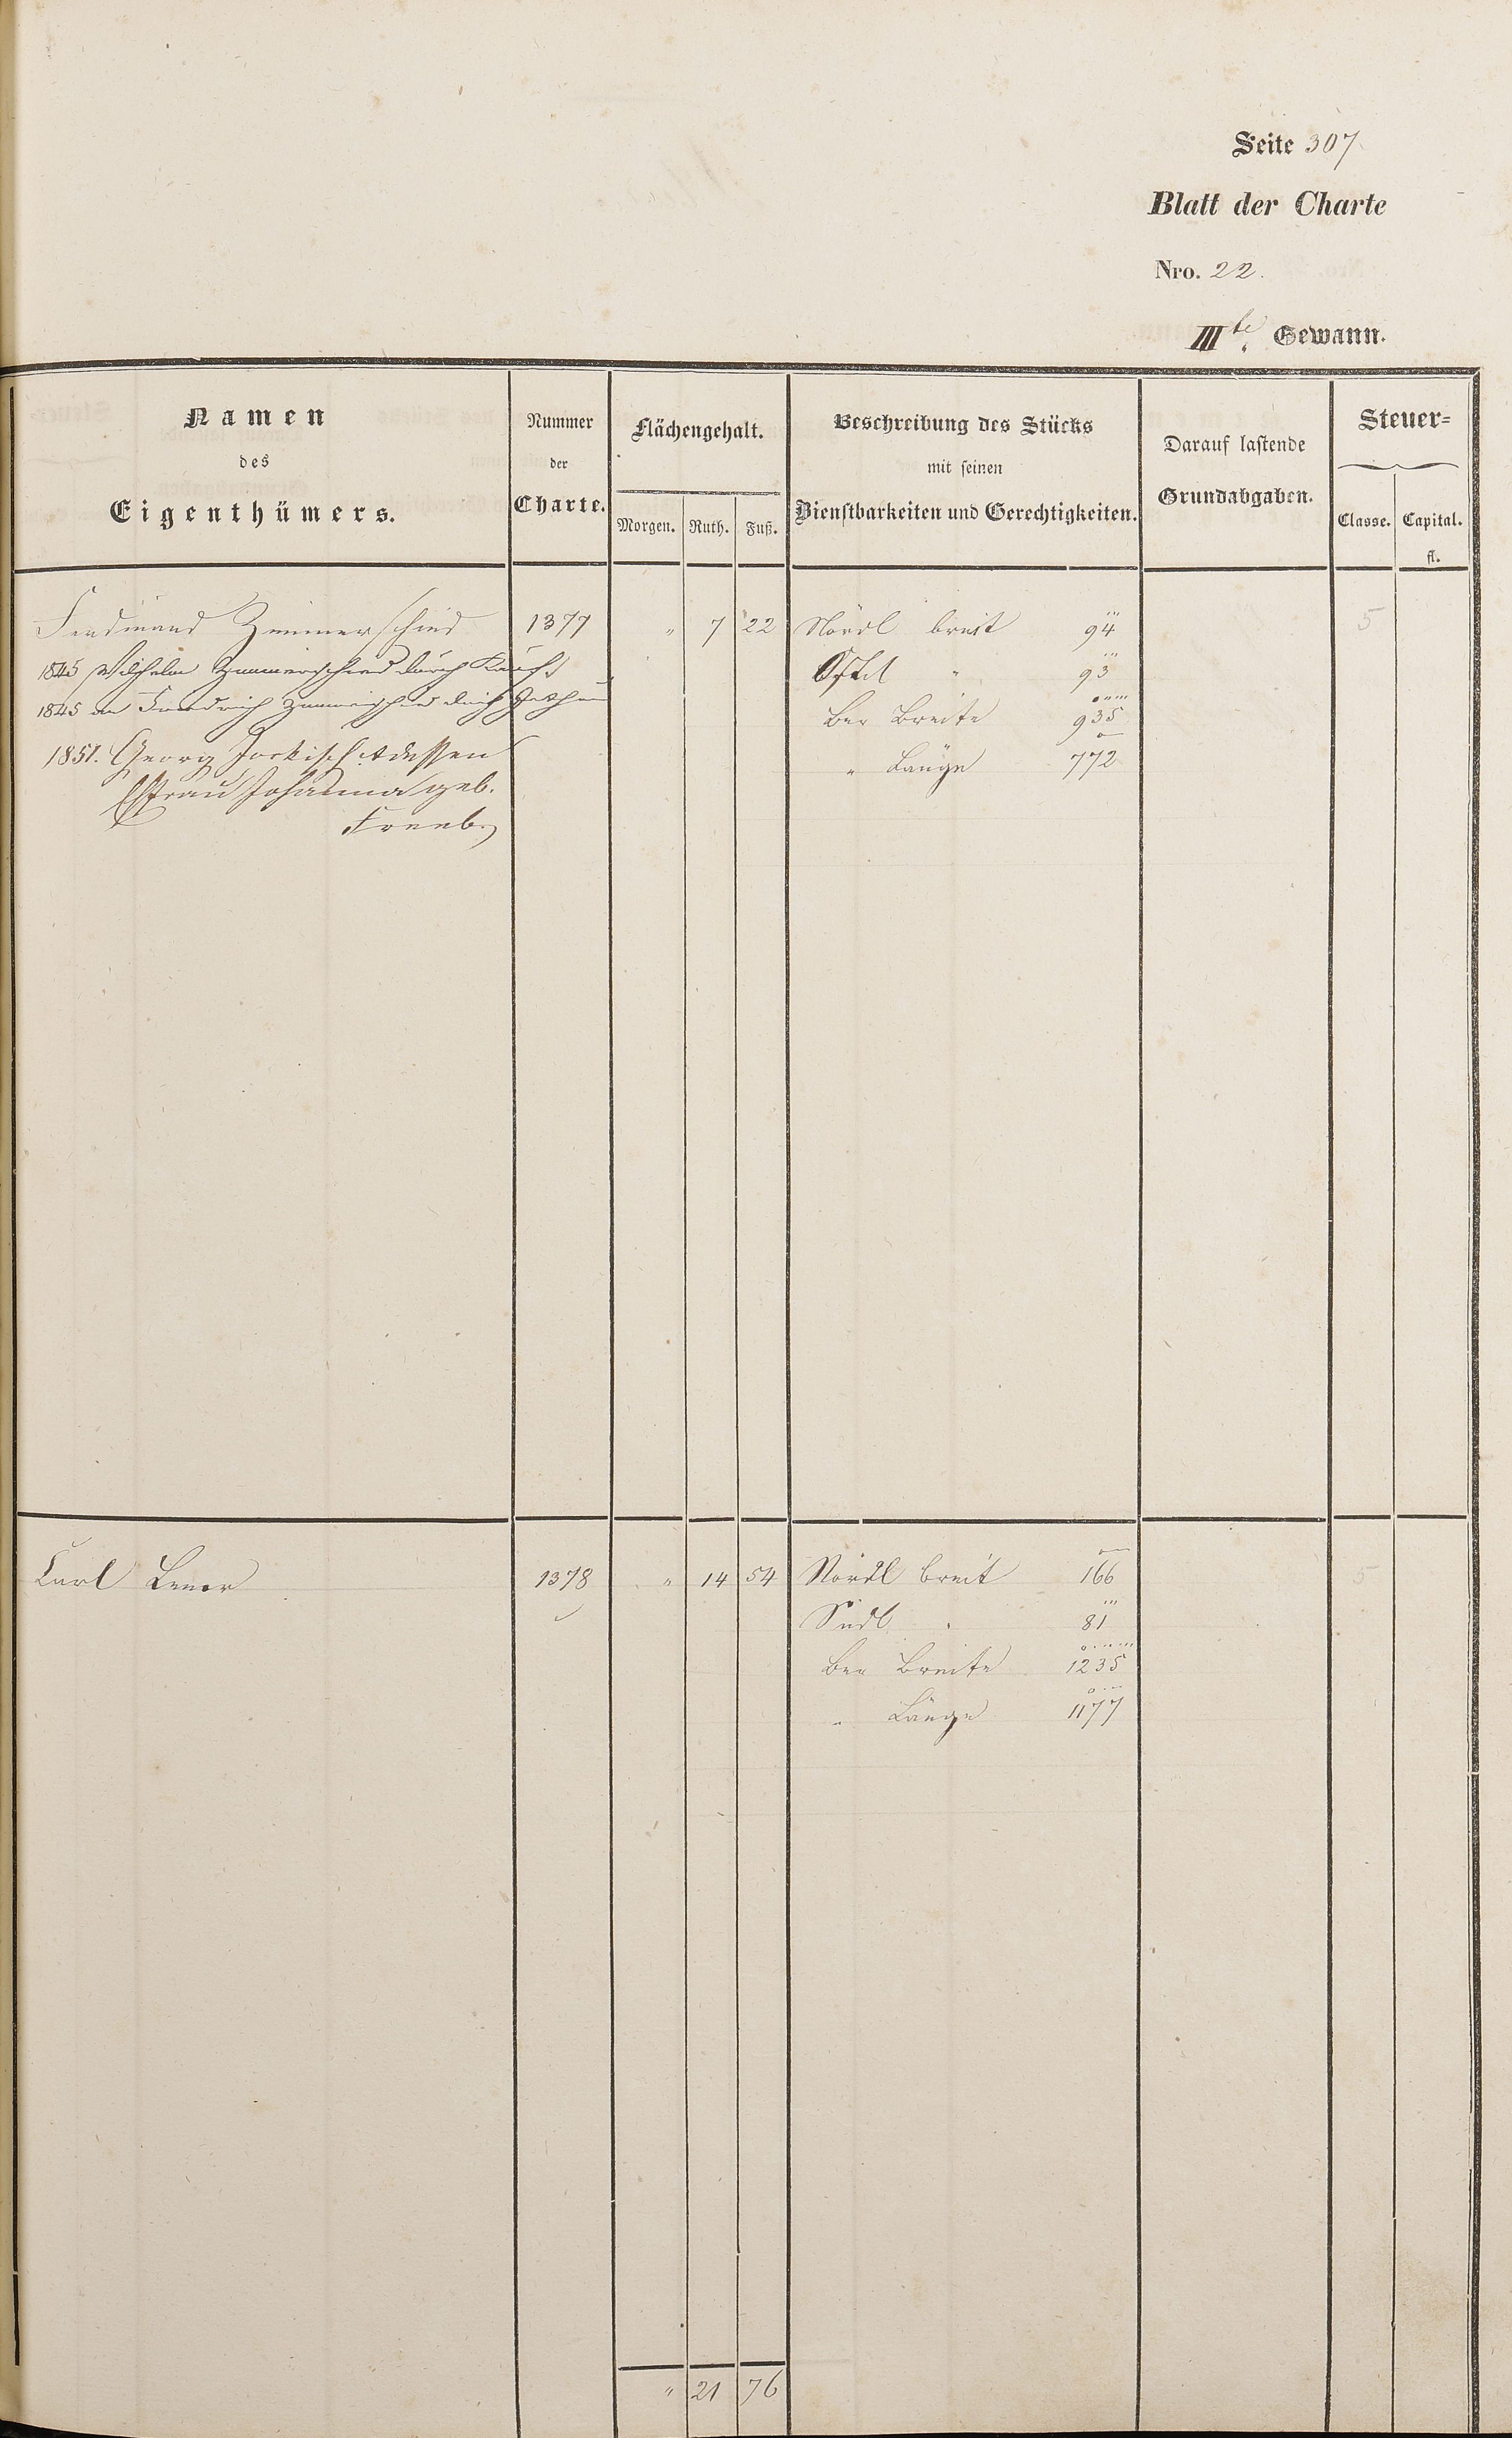 Seite 307
Blatt der Charte
Nro. 22.
III te Gewann.
Namen
des
Eigenthümers.
Nummer
der
Charte.
Flächengehalt.
Morgen. Ruth. Fuß.
Beschreibung des Stücks
mit seinen
Dienstbarkeiten und Gerechtigkeiten.
Darauf lastende
Grundabgaben.
Steuer-
Classe. Capital.
fl.
Ferdinand Zimmerschied 1377 " 7 22 Nördl breit 94 5
1845 Wilhelm Zimmerschied durch Kauf Östl " 93
1845 an Friedrich Zimmerschied durch Ber Breite 935
1851. Georg dessen " Länge 772
Ehefrau Johanna geb.
Carl 1378 " 14 54 Nördl breit 166 5
Südl " 81
Ber Breite 1235
" Länge 1177
" 21 76